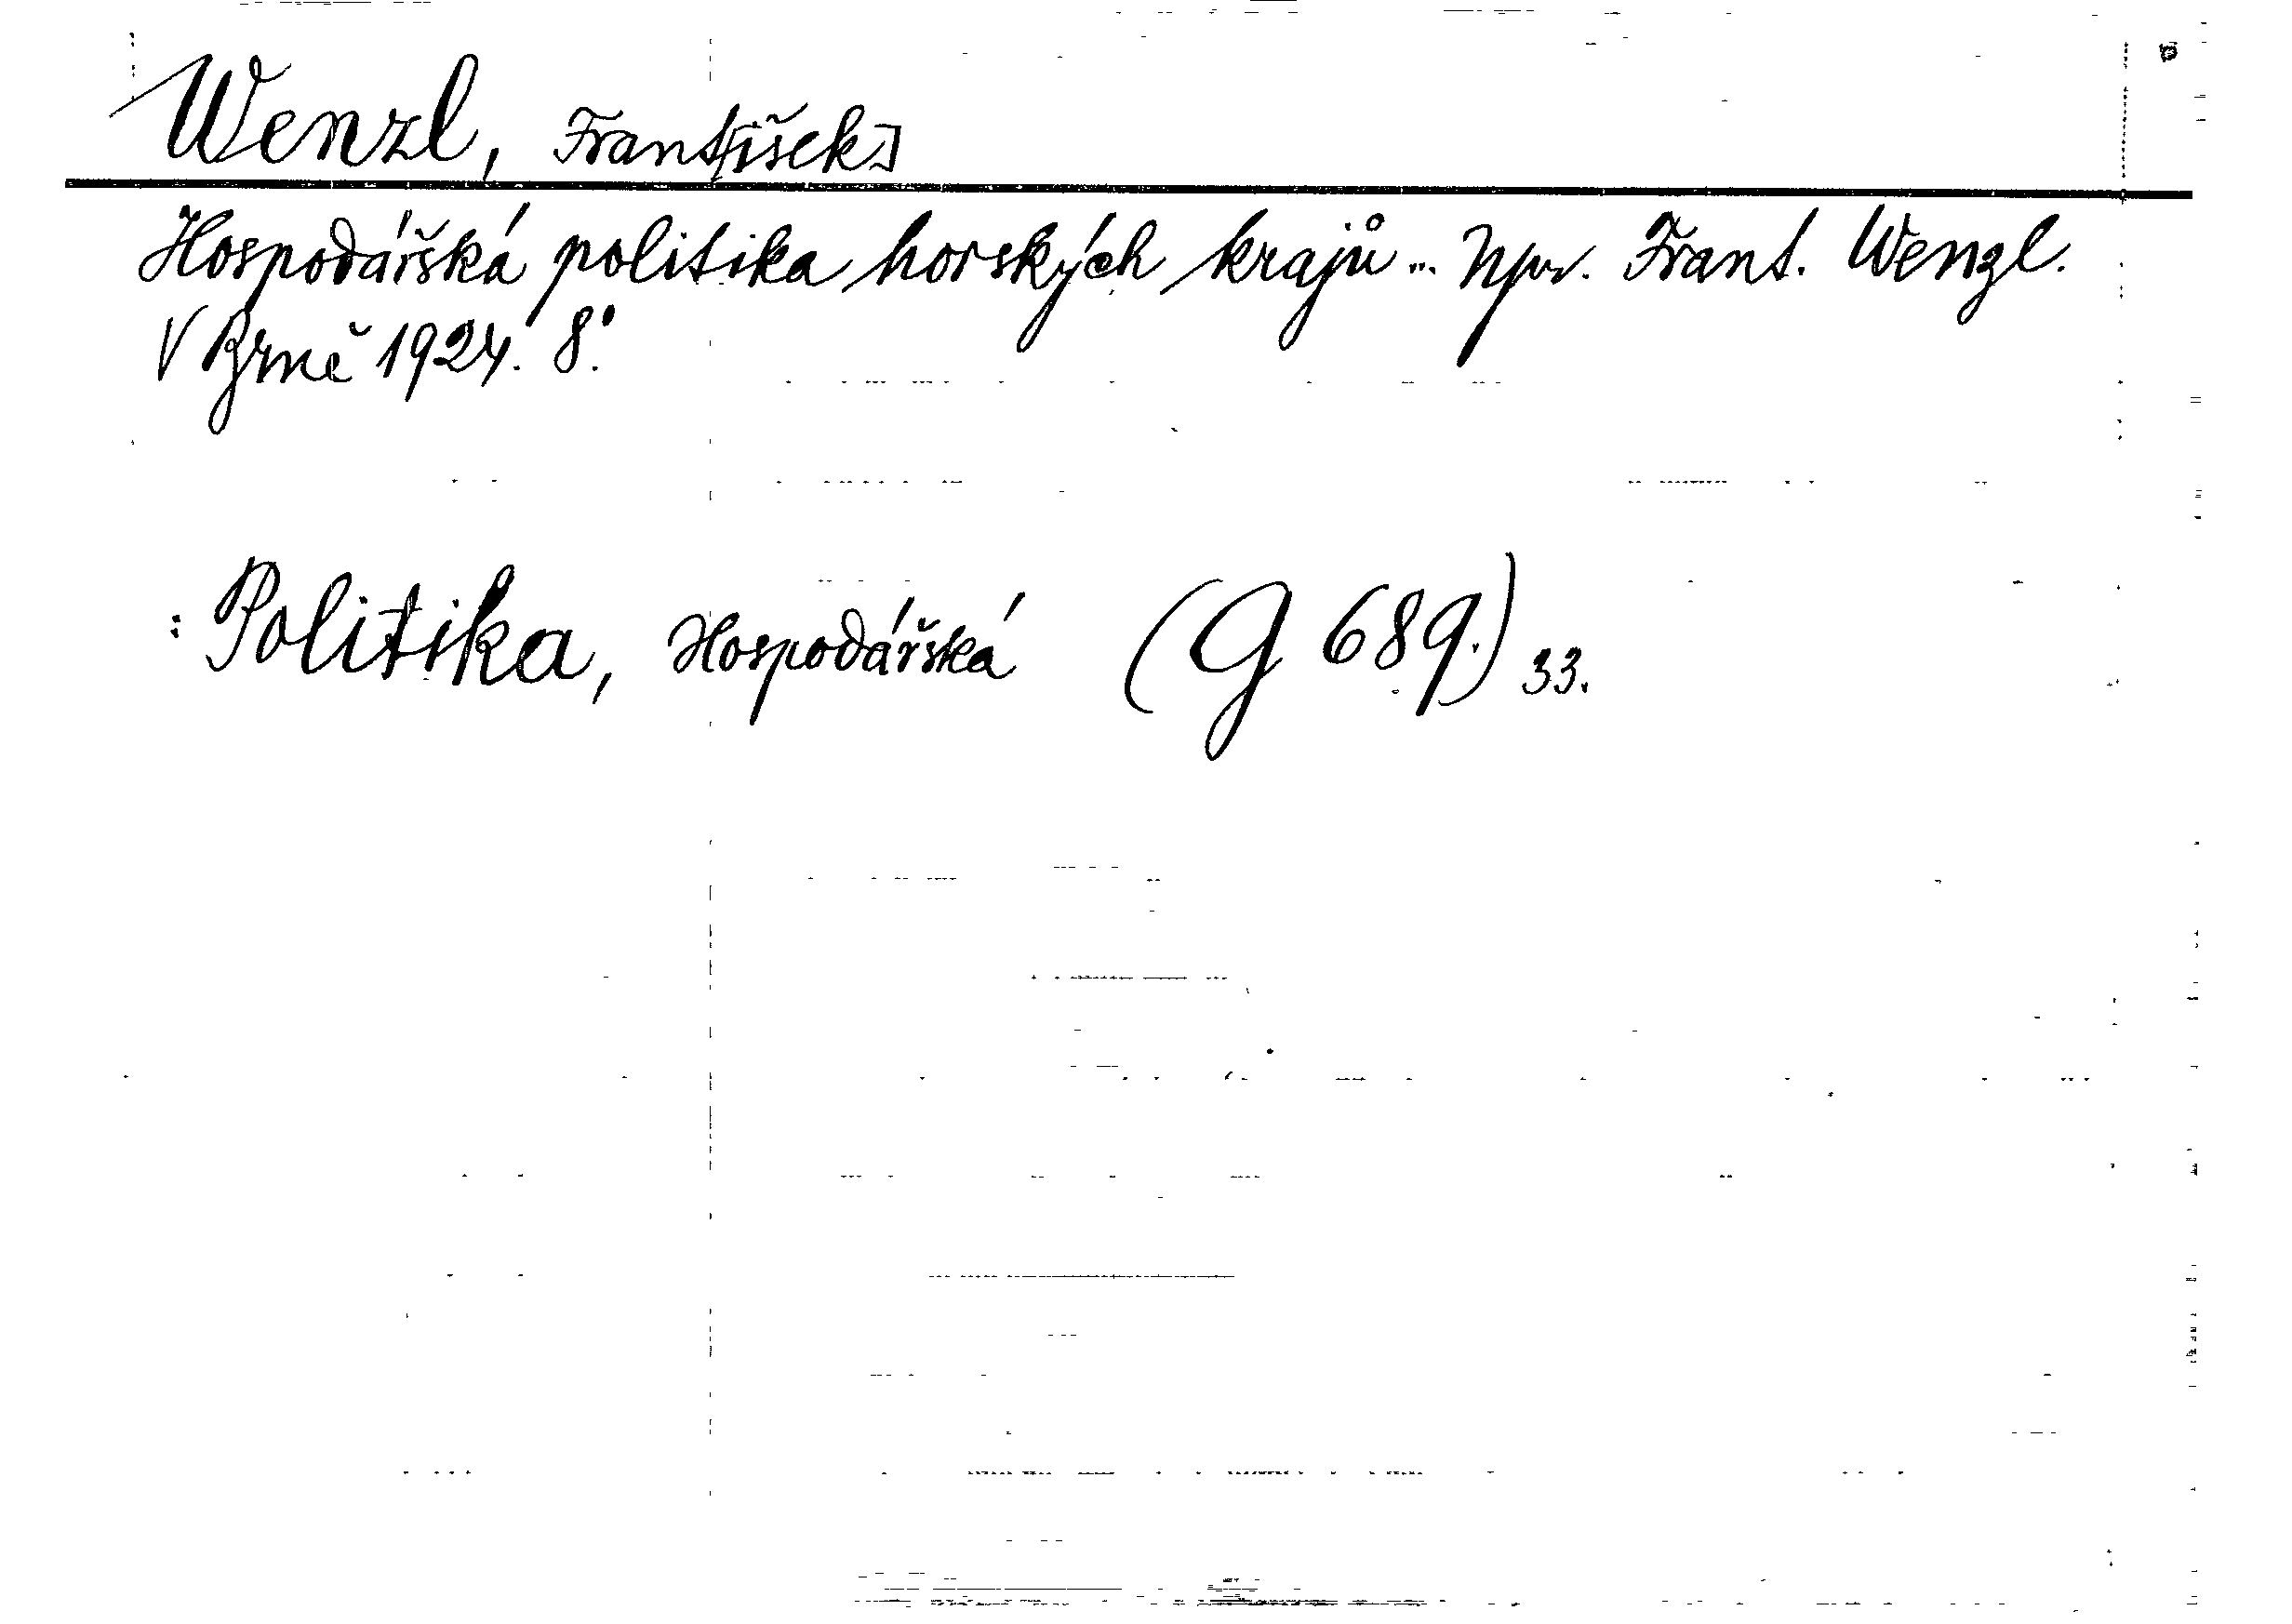 Wenzl, Frant[išek]
Hospodářská politika horských krajů... Npr. Frant. Wenzl.
V Brně 1924. 8°.
: Politika, Hospodářská (G 689.) 33.